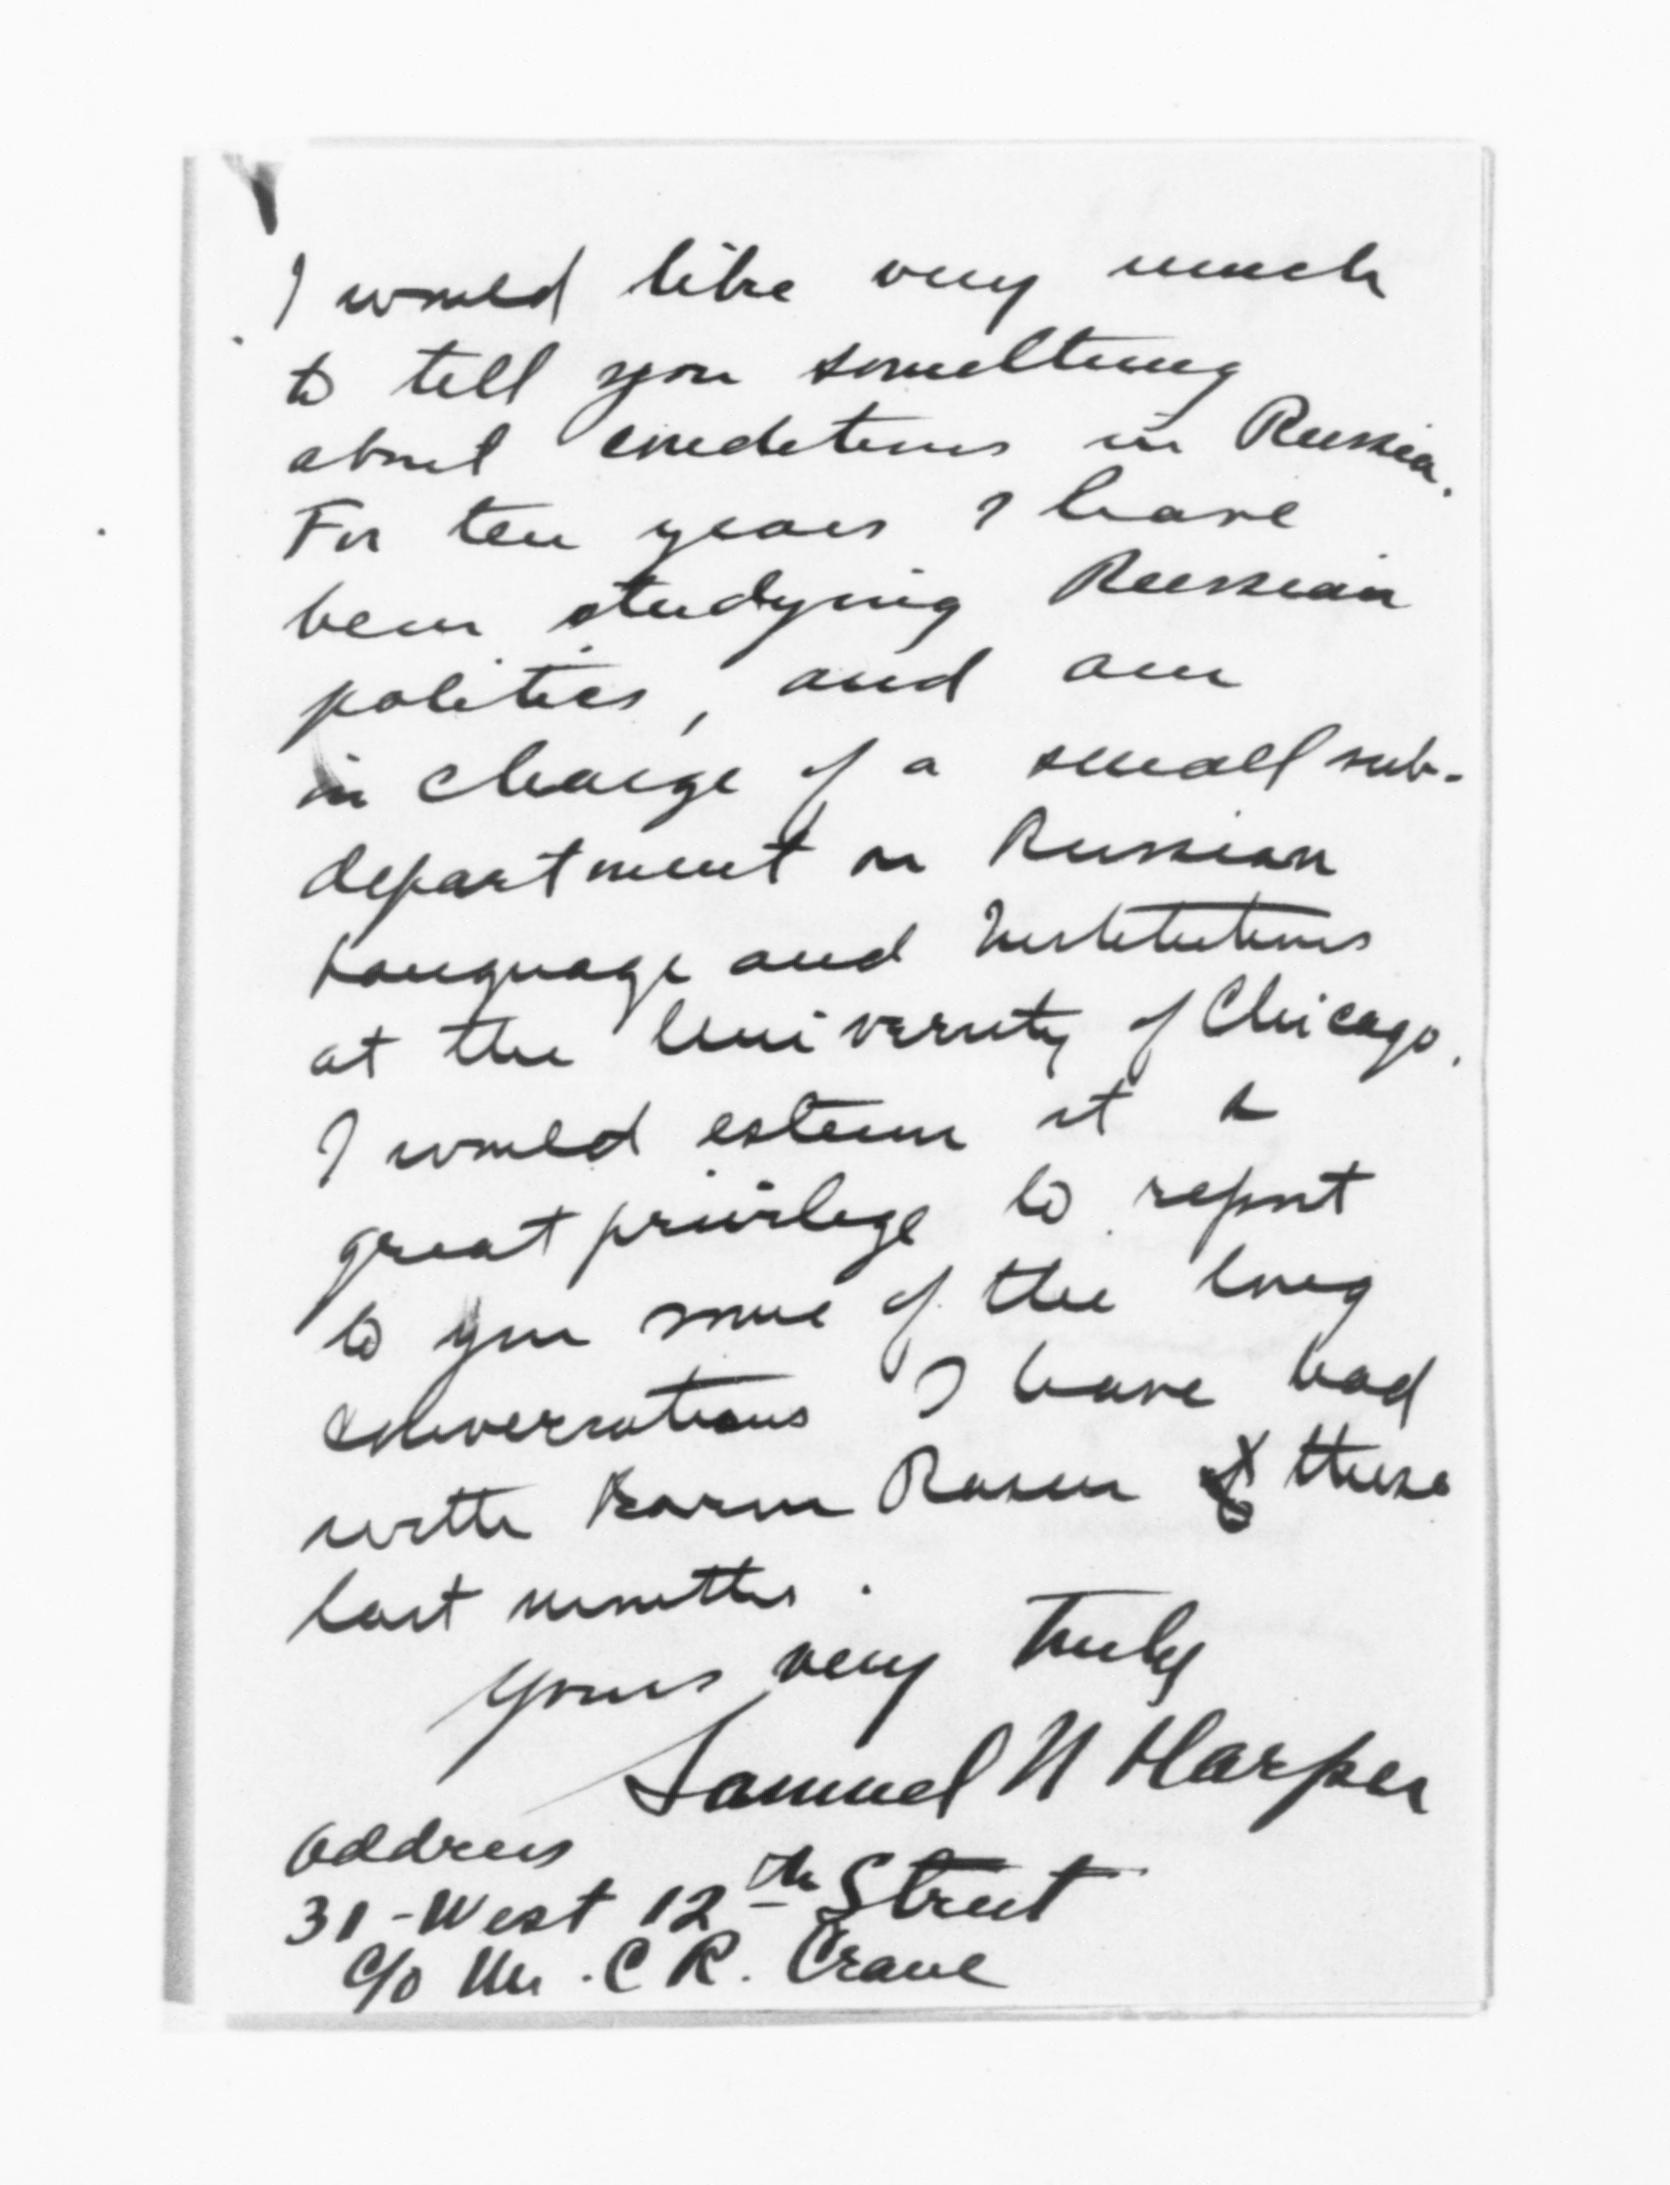 I would like very much
to tell you something
about conditions in Russia.
For ten years I have
been studying Russian
politics, and am
in charge of a small sub-
department on Russian
Language and Institutions
at the University of Chicago.
I would esteem it a
great privilege to report
to you some of the long
conversations I have had
with Baron Rosen these
last months.
Yours very truly
Samuel N Harper
Address
31-West 12th Street
c/o Mr. C R. Crane